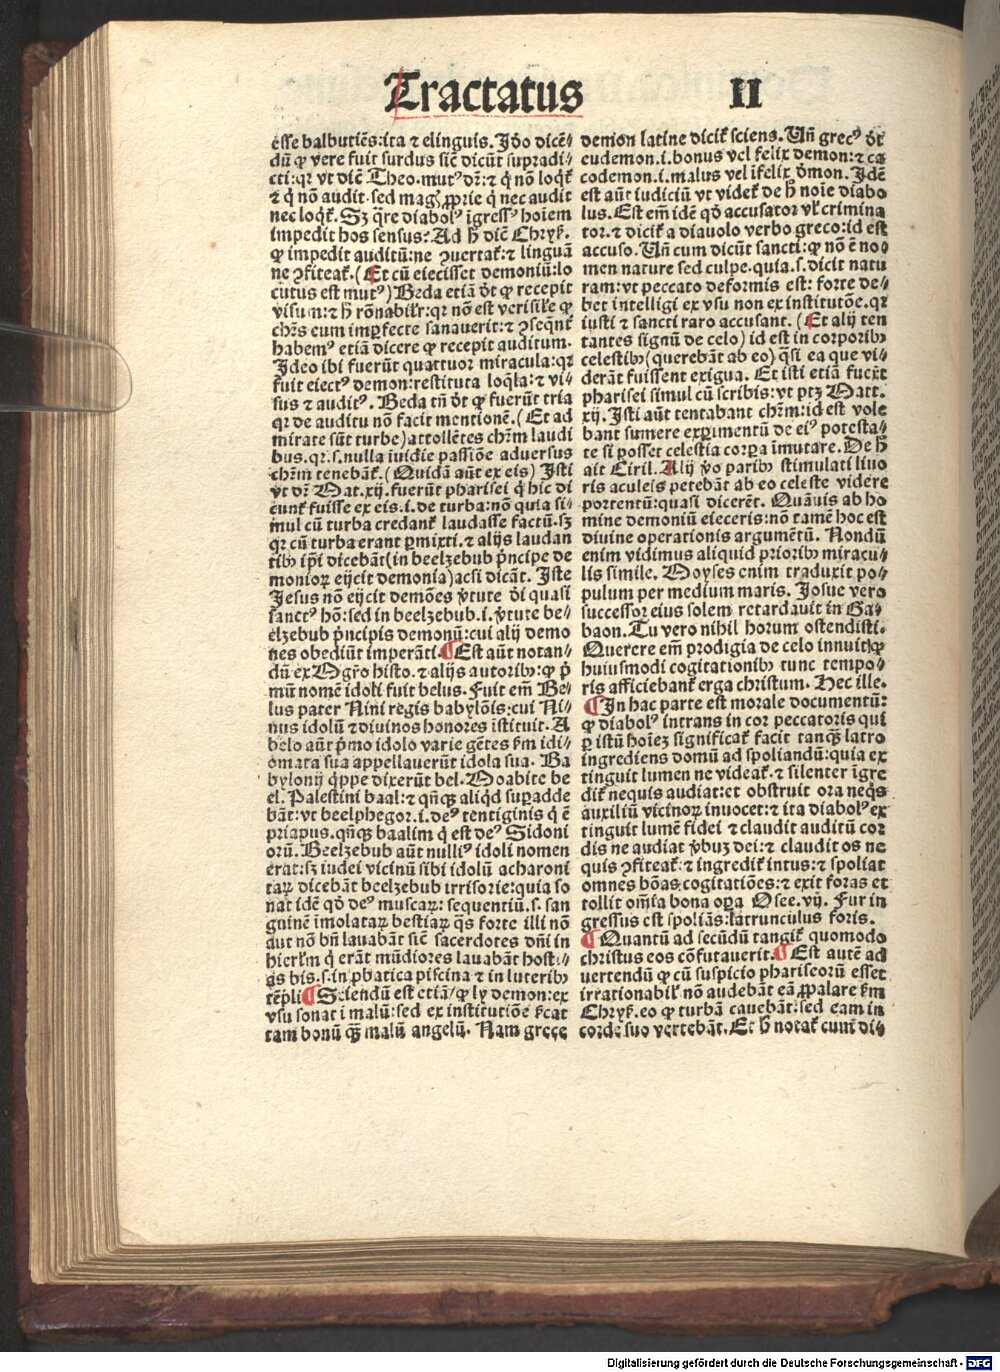 Tractatus II
esse balbutiēs:ita ⁊ elinguis. Iō̄o dicē⸗
dū ꝙ vere fuit surdus sic̄ dicūt supradi⸗
cti:qꝛ vt dic̄ Theo.mutꝰ dr̄:⁊ q̇ nō loqͥt̄
⁊ q̇ nō audit.sed magꝭ ꝓprie q̇ nec audit
nec loqͥt̄. Sꝫ q̄re diabolꝰ īgressꝰ hoīem
impedit hos sensus: Ad h̄ dic̄ Chryſ.
ꝙ impedit auditū:ne ꝯuertat̄:⁊ linguā
ne ꝯfiteat̄.(Et cū eiecisset demoniū:lo
cutus est mutꝰ) Beda etiā ō̄t ꝙ recepit
visum:⁊ h̄ rōnabilr̄:qꝛ nō est verisile ꝙ
chr̄s eum imꝑfecte sanauerit:⁊ ꝯseqn̄t̄
habemꝰ etiā dicere ꝙ recepit auditum.
Ideo ibi fuerūt quattuor miracula:qꝛ
fuit eiectꝰ demon:restituta loqͥla:⁊ vi⸗
sus ⁊ auditꝰ. Beda tn̄ ō̄t ꝙ fuerūt tria
qꝛ de auditu nō facit mentionē.(Et ad
mirate sūt turbe)attollētes chr̄m laudi
bus.qꝛ.s.nulla iuidie passiōe aduersus
chr̄m tenebāt̄.(Quidā aūt ex eis) Isti
vt dr̄ Mat.xij.fuerūt pharisei q̇ hic di
cunt̄ fuisse ex eis.i.de turba:nō quia si⸗
mul cū turba credant̄ laudasse factū.sꝫ
qꝛ cū turba erant ꝑmixti.⁊ alijs laudan
tibꝰ ip̄i dicebāt(in beelzebub pͥncipe de
monioꝝ eijcit demonia)acsi dicāt. Iste
Jesus nō eijcit demōes v̄tute d̄i quasi
sanctꝰ hō:sed in beelzebub.i.v̄tute be⸗
elzebub pͥncipis demonū:cui alij demo
nes obediūt imperāti.¶Est aūt notan⸗
dū ex Mgr̄o histo.⁊ alijs autoribꝰ:ꝙ pͥ
mū nomē idoli fuit belus. Fuit em̄ Be⸗
lus pater Nini regis babylōis:cui Ni⸗
nus idolū ⁊ diuinos honores īstituit. A
belo aūt pͥmo idolo varie gētes fm̄ idi⸗
omata sua appellauerūt idola sua. Ba
bylonij q̇ppe dixerūt bel. Moabite be
el. Palestini baal:⁊ qn̄qꝫ aliqͥd suꝑadde
bāt:vt beelphegor.i.deꝰ tentiginis q̇ ē
priapus.qn̄qꝫ baalim q̇ est deꝰ Sidoni
orū. Beelzebub aūt nulliꝰ idoli nomen
erat:sꝫ iudei vicinū sibi idolū acharoni
taꝝ dicebāt beelzebub irrisorie:quia so
nat idē qō deꝰ muscaꝝ: sequentiū.s.san
guinē imolataꝝ bestiaꝝ qͣs forte illi nō
aut nō bn̄ lauabāt sic̄ sacerdotes dn̄i in
hierl̄m q̇ erāt mūdiores lauabāt hosti⸗
as bis.s.in ꝓbatica piscina ⁊ in luteribꝰ
tēpli¶Sciendū est etiā/ꝙ ly demon:ex
vsu sonat i malū:sed ex institutiōe s̄cat
tam bonū qꝫ malū angelū. Nam grece
demon latine dicit̄ sciens. Un̄ grecꝰ ō̄t
eudemon.i.bonus vel felix demon:⁊ ca
codemon.i.malus vel īfelix d̄mon. Idē
est aūt iudiciū vt videt̄ de h̄ noīe diabo
lus. Est em̄ idē qō accusator vl̓ crimina
tor.⁊ dicit̄ a diauolo verbo greco:id est
accuso. Un̄ cum dicūt sancti:ꝙ nō ē no⸗
men nature sed culpe.quia.s.dicit natu
ram:vt peccato deformis est: forte de⸗
bet intelligi ex vsu non ex institutōe.qꝛ
iusti ⁊ sancti raro accusant. (Et alij ten
tantes signū de celo) id est in corporibꝰ
celestibꝰ(querebāt ab eo) qͣsi ea que vi⸗
derāt fuissent exigua. Et isti etiā fuer̄t
pharisei simul cū scribis:vt ptꝫ Matt.
xij. Isti aūt tentabant chr̄m:id est vole
bant sumere exꝑimentū de eiꝰ potesta⸗
te si posset celestia corꝑa īmutare. De h̄
ait Ciril. Alij v̄o paribꝰ stimulati liuo
ris aculeis petebāt ab eo celeste videre
portentū:quasi dicerēt. Quāuis ab ho
mine demoniū eieceris:nō tamē hoc est
diuine operationis argumētū. Nondū
enim vidimus aliquid prioribꝰ miracu⸗
lis simile. Moyses enim traduxit po⸗
pulum per medium maris. Josue vero
successor eius solem retardauit in Ga⸗
baon. Tu vero nihil horum ostendisti.
Querere em̄ prodigia de celo innuit/ꝙ
huiusmodi cogitationibꝰ tunc tempo⸗
ris afficiebant̄ erga christum. Hec ille.
¶In hac parte est morale documentū:
ꝙ diabolꝰ intrans in cor peccatoris qui
ꝑ istū hoīeꝫ significat̄ facit tanqꝫ latro
ingrediens domū ad spoliandū:quia ex
tinguit lumen ne videat̄.⁊ silenter īgre
dit̄ nequis audiat:et obstruit ora neqͥs
auxiliū vicinoꝝ inuocet:⁊ ita diabolꝰ ex
tinguit lumē fidei ⁊ claudit auditū cor
dis ne audiat v̄buꝫ dei:⁊ claudit os ne
quis ꝯfiteat̄:⁊ ingredit̄ intus:⁊ spoliat
omnes bōas cogitatiōes:⁊ exit foras et
tollit om̄ia bona oꝑa Osee.vij. Fur in
gressus est spoliās:latrunculus foris.
¶Quantū ad secūdū tangit̄ quomodo
christus eos cōfutauerit.¶Est autē ad
uertendū ꝙ cū suspicio phariseorū esset
irrationabil̓ nō audebāt eā ꝓpalare fm̄
Chryſ.eo ꝙ turbā cauebāt:sed eam in
corde suo vertebāt. Et h̄ notat̄ cum di⸗
Digitalisierung gefördert durch die Deutsche Forschungsgemeinschaft - DFG